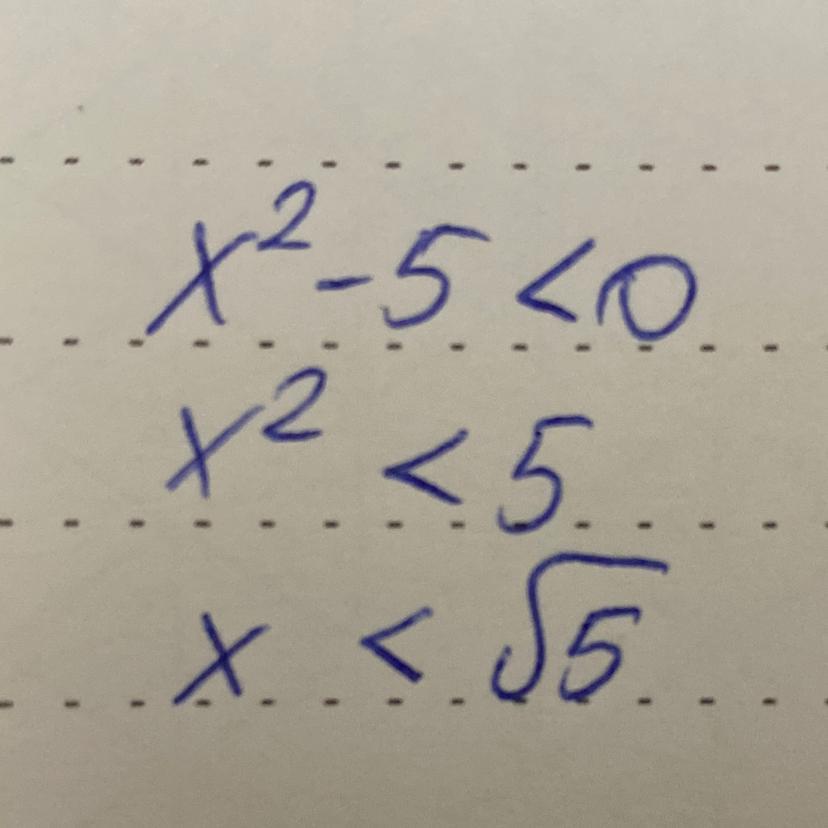 x² - 5 < 0
x² < 5
x < √5